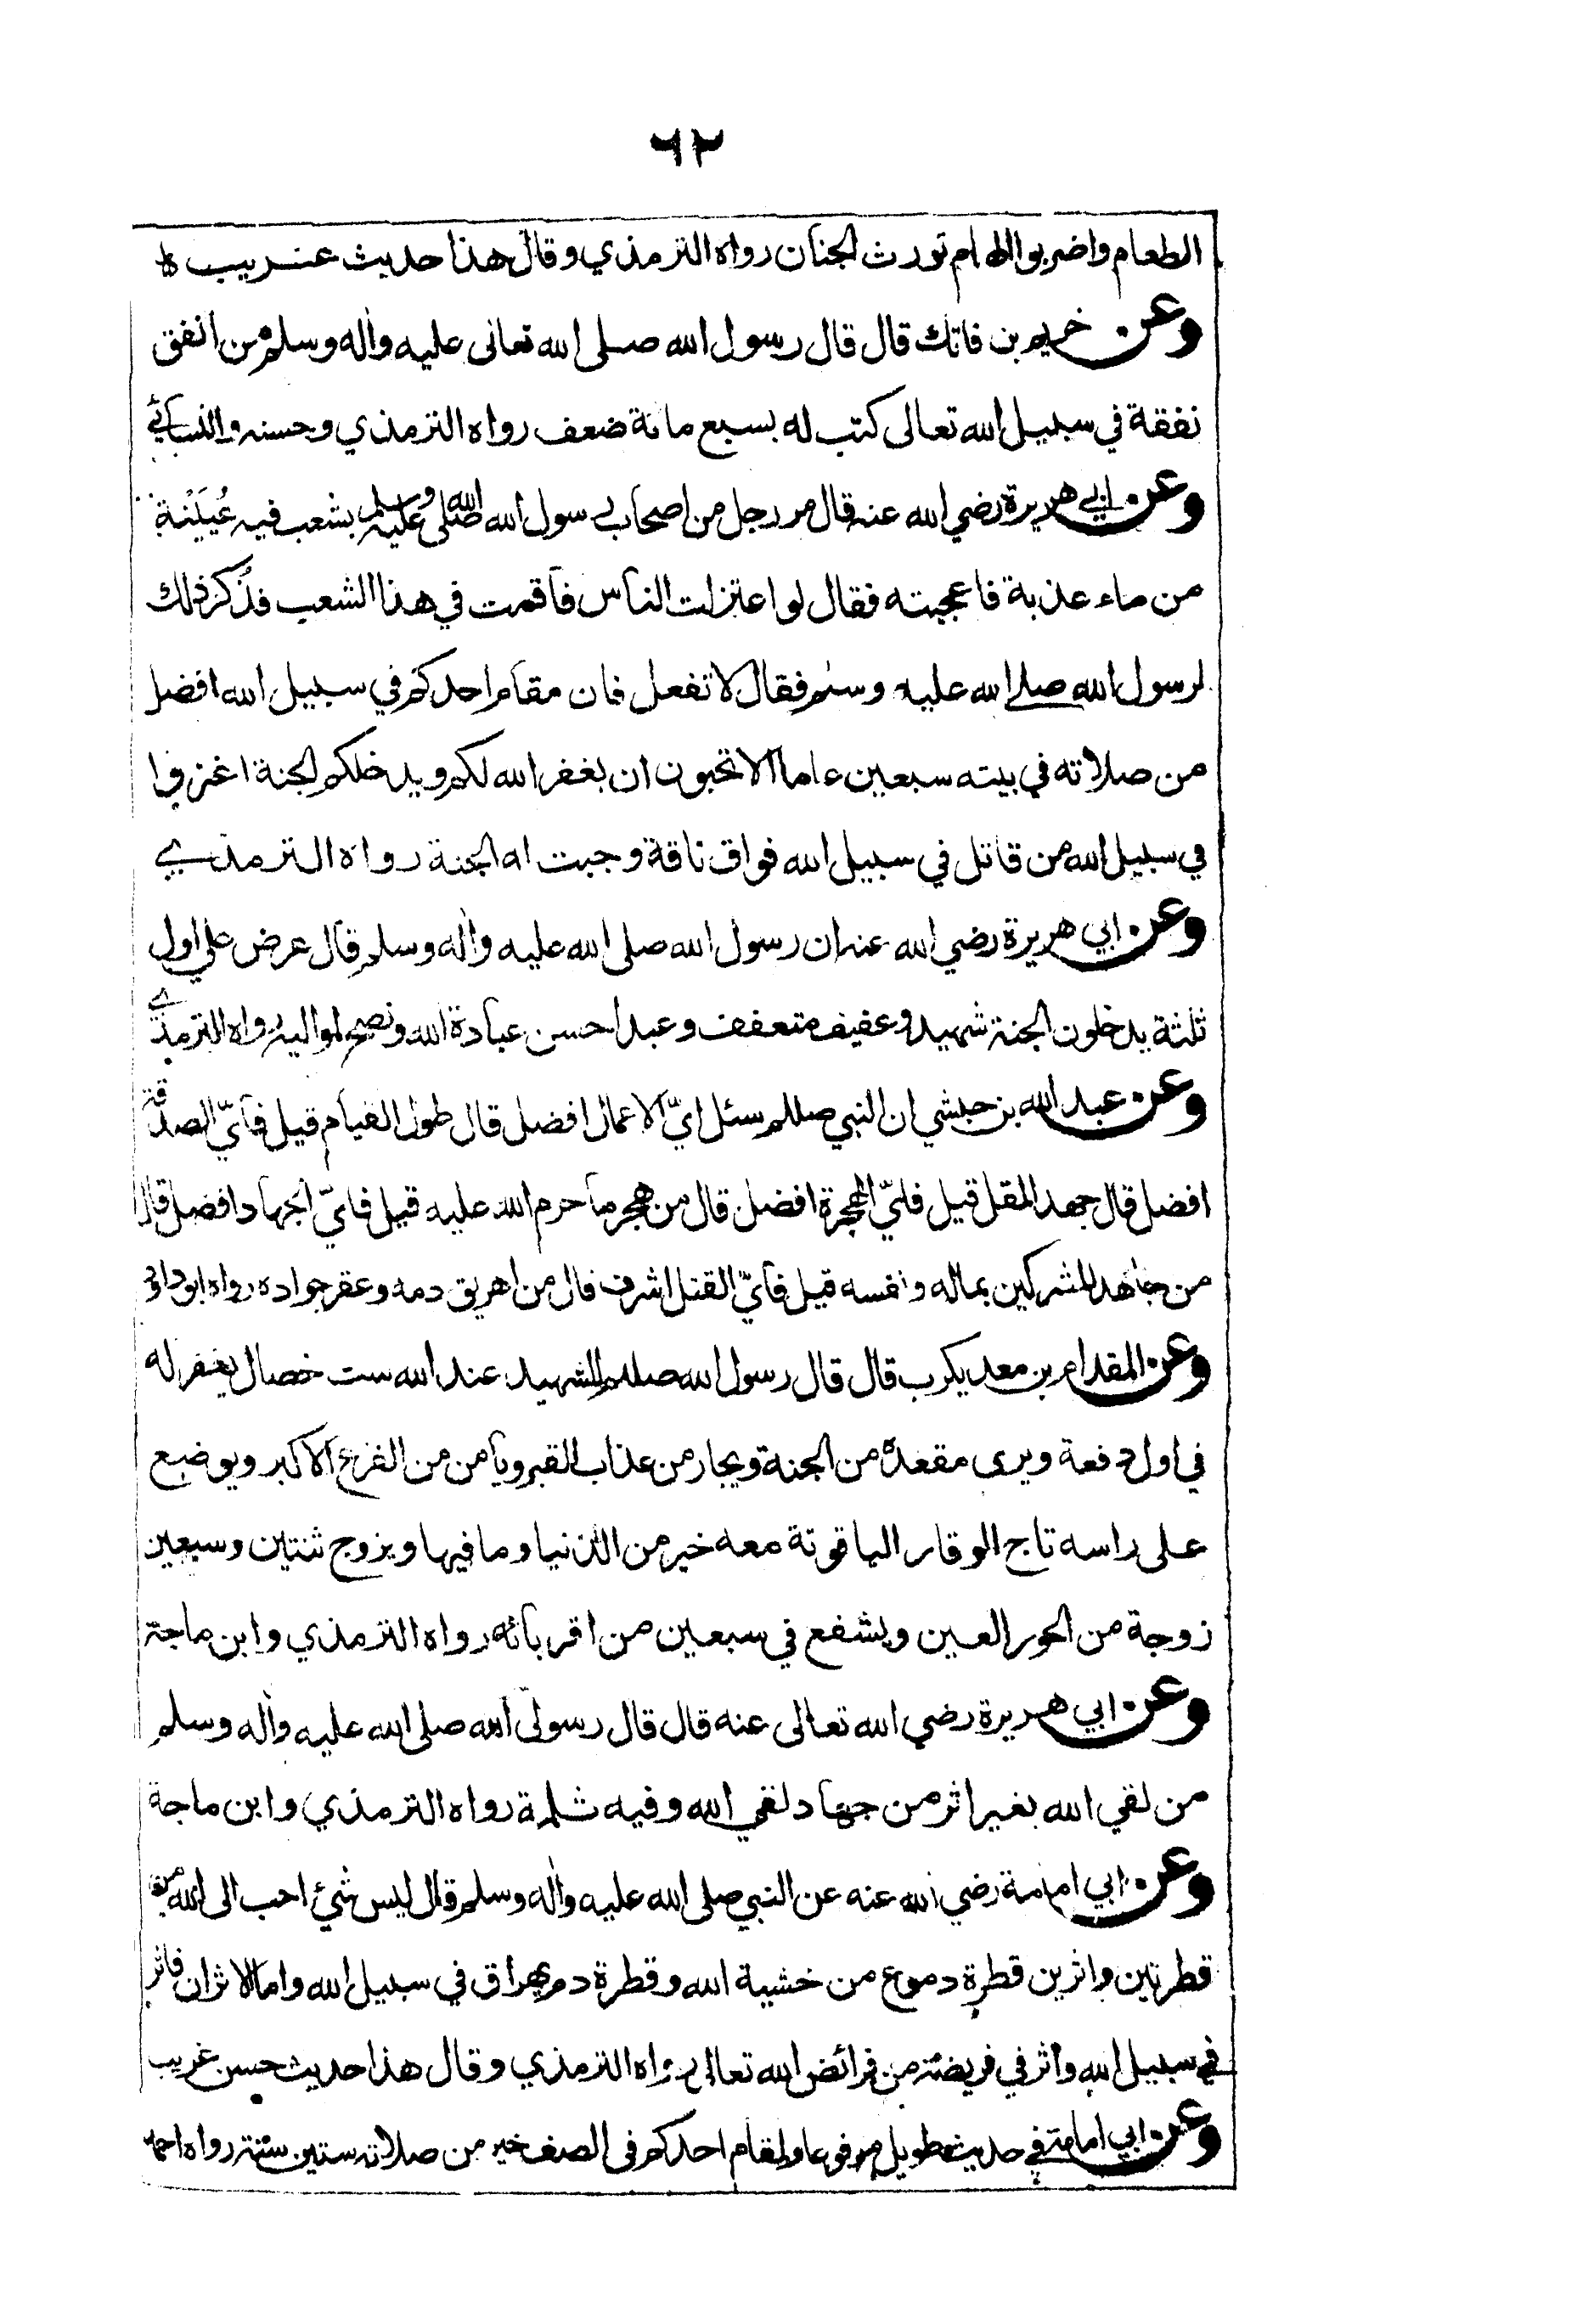 ٦٢
الطعام واضربوا الهام تورث الجنان رواه الترمذي وقال هذا حديث غريب ه
وعن خريم بن فاتك قال قال رسول الله صلى الله تعالى عليه واله وسلم من انفق
نفقة في سبيل الله تعالى كتب له بسبع مائة ضعف رواه الترمذي وحسنه والنسائي
وعن ابي هريرة رضي الله عنه قال مر رجل من اصحاب رسول الله صلى الله عليه وسلم بشعب فيه عُيَيْنة
من ماء عذبة فاعجبته فقال لو اعتزلت الناس فاقمت في هذا الشعب فذُكر ذلك
لرسول الله صلى الله عليه وسلم فقال لا تفعل فان مقام احدكم في سبيل الله افضل
من صلاته في بيته سبعين عاما الا تحبون ان يغفر الله لكم ويدخلكم الجنة اغزوا
في سبيل الله من قاتل في سبيل الله فواق ناقة وجبت له الجنة رواه الترمذي
وعن ابي هريرة رضي الله عنه ان رسول الله صلى الله عليه واله وسلم قال عرض علي اول
ثلثة يدخلون الجنة شهيد وعفيف متعفف وعبد احسن عبادة الله ونصح لمواليه رواه الترمذي
وعن عبد الله بن حبشي ان النبي صللم سئل ايّ الاعمال افضل قال طول القيام قيل فايّ الصدقة
افضل قال جهد المقل قيل فايّ الهجرة افضل قال من هجر ما حرم الله عليه قيل فايّ الجهاد افضل قال
من جاهد المشركين بماله ونفسه قيل فايّ القتل اشرف قال من اهريق دمه وعقر جواده رواه ابو داود
وعن المقدام بن معد يكرب قال قال رسول الله صللم للشهيد عند الله ست خصال يغفر له
في اول دفعة ويرى مقعده من الجنة ويجار من عذاب القبر ويامن من الفزع الاكبر ويوضع
على راسه تاج الوقار الياقوتة معه خير من الدنيا وما فيها ويزوج ثنتين وسبعين
زوجة من الحور العين ويشفع في سبعين من اقربائه رواه الترمذي وابن ماجة
وعن ابي هريرة رضي الله تعالى عنه قال قال رسول الله صلى الله عليه واله وسلم
من لقي الله بغير اثر من جهاد لقي الله وفيه ثلمة رواه الترمذي وابن ماجة
وعن ابي امامة رضي الله عنه عن النبي صلى الله عليه واله وسلم قال ليس شئ احب الى الله من
قطرتين واثرين قطرة دموع من خشية الله وقطرة دم يهراق في سبيل الله واما الاثران فاثر
في سبيل الله واثر في فريضة من فرائض الله تعالى رواه الترمذي وقال هذا حديث حسن غريب
وعن ابي امامة في حديث طويل مرفوعا ولمقام احدكم في الصف خير من صلاته ستين سنة رواه احمد